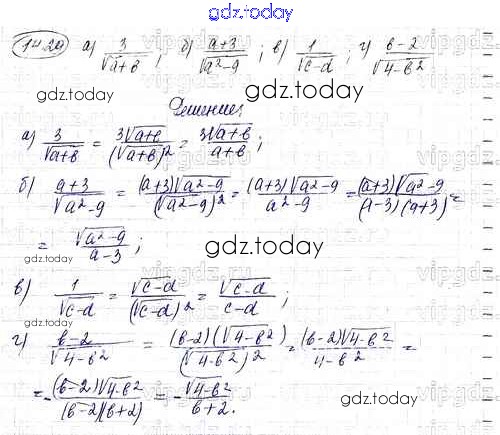 gdz.today
14.20 а) 3/√(a+b); б) (a+3)/√(a²-9); в) 1/√(c-d); г) (b-2)/√(4-b²)
Решение:
а) 3/√(a+b) = 3√(a+b)/(√(a+b))² = 3√(a+b)/(a+b);
б) (a+3)/√(a²-9) = (a+3)√(a²-9)/(√(a²-9))² = (a+3)√(a²-9)/(a²-9) = (a+3)√(a²-9)/((a-3)(a+3)) =
= √(a²-9)/(a-3);
gdz.today
в) 1/√(c-d) = √(c-d)/(√(c-d))² = √(c-d)/(c-d);
gdz.today
г) (b-2)/√(4-b²) = (b-2)(√(4-b²))/(√(4-b²))² = (b-2)√(4-b²)/(4-b²) =
= -(b-2)√(4-b²)/((b-2)(b+2)) = -√(4-b²)/(b+2).
gdz.today